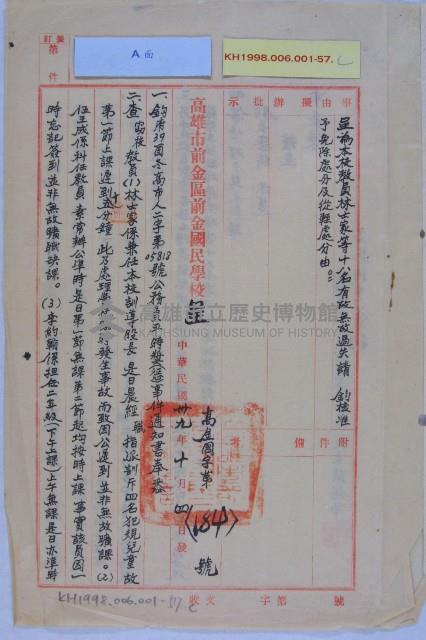 裝訂
第 件
A面
KH1998.006.001-57. C
事由 擬辦 批示
呈為本校教員林士家等十八名有故無故過失請 鈞核准
予免除處分及從輕處分由。
附件 備考
高雄市前金區前金國民學校 呈
中華民國卅九年十月四日發
高金國字第
(184)
號
一、鈞府39酉冬高市人二字第05818號公務員平時獎懲事件通知書奉悉
二、查 職校教員(1)林士家係兼任本校訓導股長 是日晨經 職指派劄斥四名犯規兒童故
第一節上課遲到十五分鐘 此乃處理發生事故 而致因公遲到並非無故曠課。(2)
伍玉成係科任教員 素常辦公準時是日第一節無課第二節起均按時上課 事實該員因一
時忘記簽到並非無故曠職缺課。(3)李約翰係担任二年級(下午上課)上午無課是日亦準時
高雄市立歷史博物館
KAOHSIUNG MUSEUM OF HISTORY
收文 字第 號
KH1998.006.001-57 C